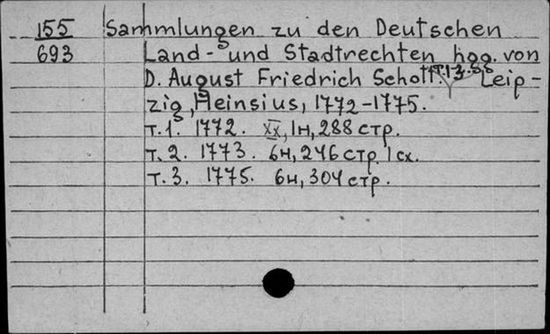 155 Sammlungen zu den Deutschen
693 Land- und Stadtrechten hgg. von
D. August Friedrich Schott. т.1-3. Leip-
zig, Heinsius, 1772-1775.
т.1. 1772. XX, 1н, 288 стр.
т.2. 1773. 6н, 246 стр. 1 сх.
т.3. 1775. 6н, 304 стр.